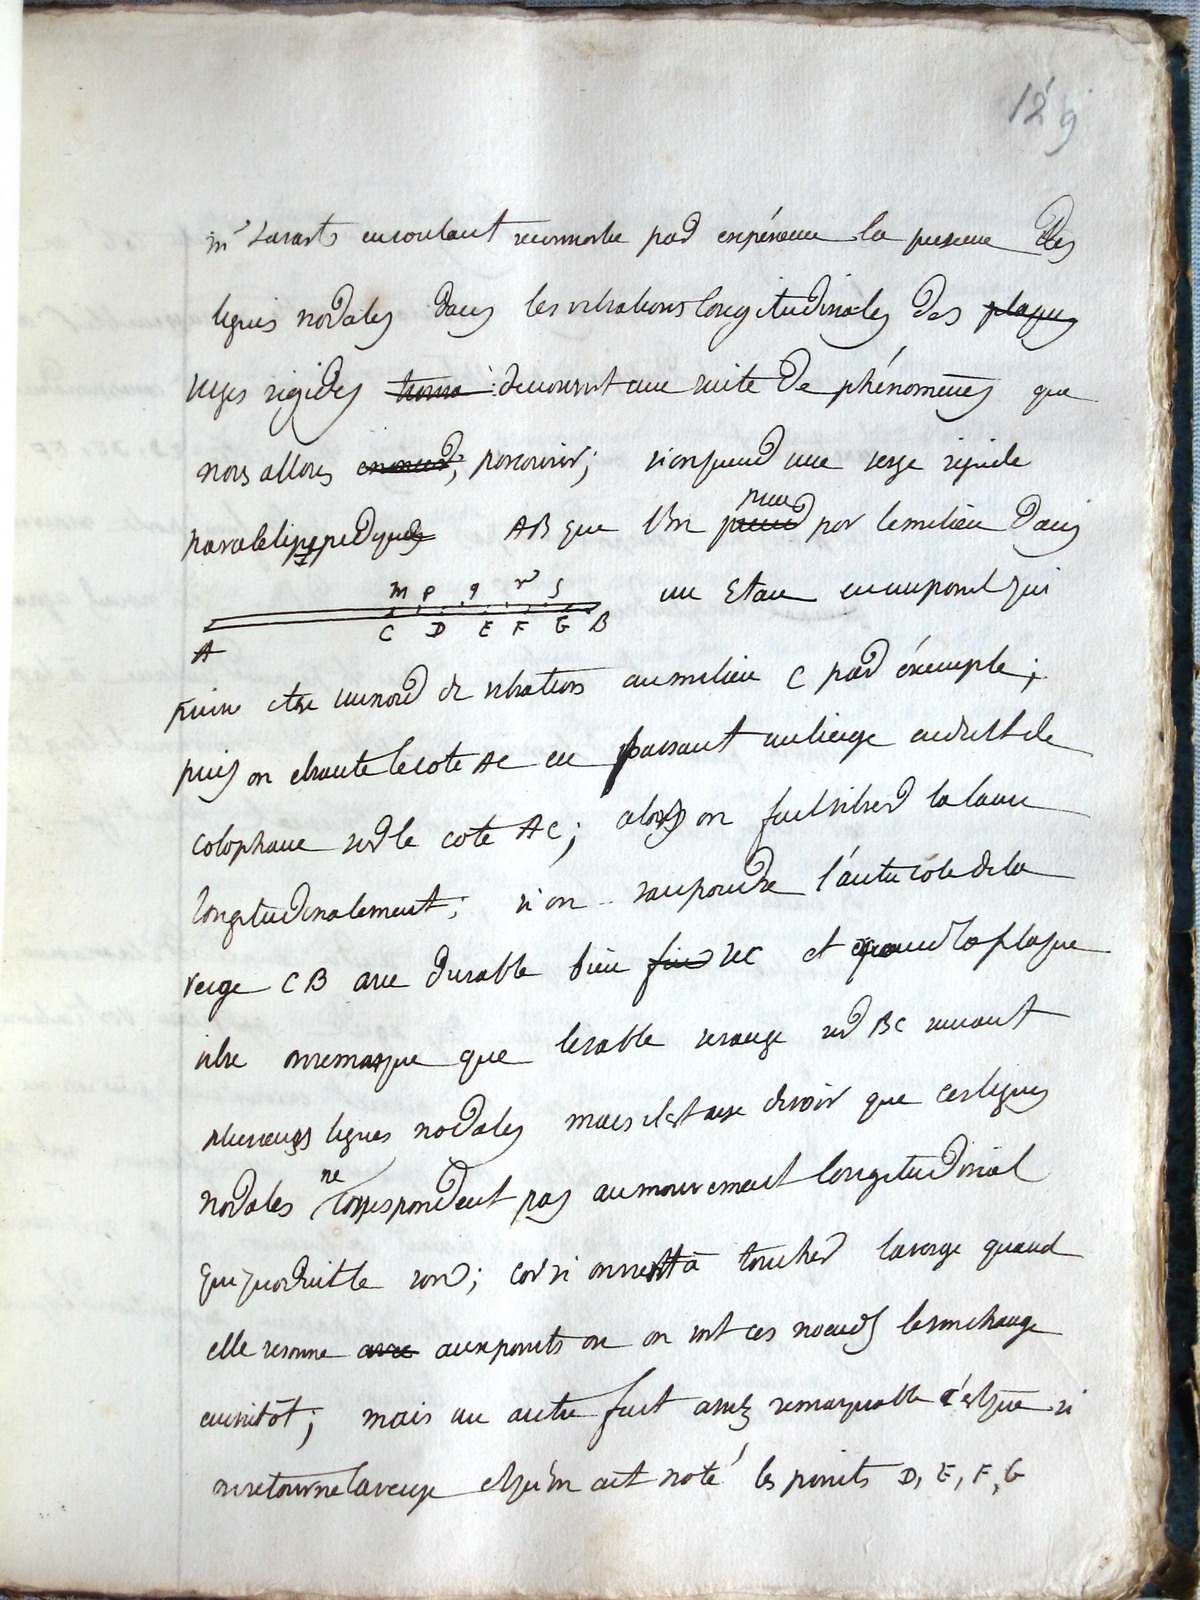 129
mr Savart en voulant reconnoitre par expérience la presence des
lignes nodales dans les vibrations longitudinales des plaques
verges rigides decouvrit une suite de phénomenes que
nous allons enoncer, parcourir; si on prend une verge rigide
paralelipipedique AB que l'on prend pince par le milieu dans
m p q r s
C D E F G B
A
un Etau en un point qui
puisse etre un noeud de vibrations au milieu C par éxemple;
puis on ebranle le coté AC en passant un linge enduit de
colophane sur le coté AC; alors on fait vibrer la lame
longitudinalement; si on saupoudre l'autre coté de la
verge CB avec du sable bien fin sec et quand la plaque
vibre on remarque que le sable se range sur BC suivant
plusieurs lignes nodales mais il est aisé de voir que ces lignes
nodales ne correspondent pas au mouvement longitudinal
qui produit le son; car si on met à toucher la verge quand
elle resonne avec aux points ou on voit ces noeuds le son change
aussitot; mais un autre fait assez remarquable c'est que si
on retourne la verge et qu'on ait noté les points D, E, F, G